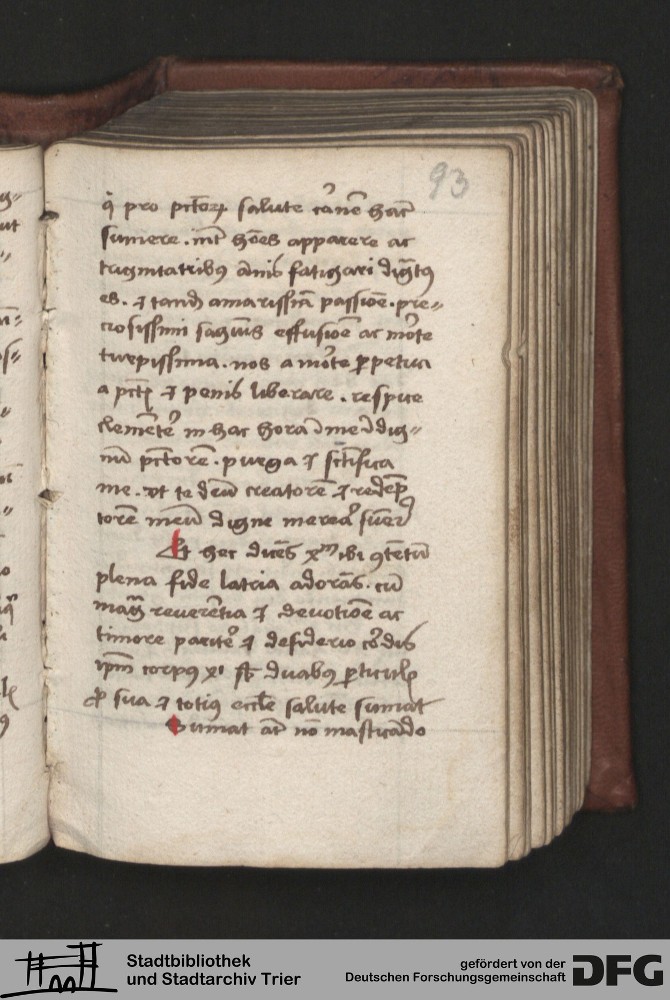 93
q̇ pro pctōꝝ salute cānē hāc
sumere . int̄ hōēs apparere ac
trigintatribꝰ ānis fatigari digͣtꝰ
es . ⁊ tandē amarissīa passiōe . pre〃
ciosissimi sagͥnis effusiōe ac mōte
turpissima . nos a mōte ꝑpetua
a pctīs ⁊ penis liberare . respice
clemēt̾ in hac hora ī me īdig〃
nū pctorē . purga ⁊ sctīfica
me . vt te deū creatorē ⁊ redēp
torē meū digne merear sūere
Et hec dicēs xpm ibi ꝯtētū
plena fide latria adorās . cū
magͣ reverētia ⁊ devotiōe ac
timore parit̾ ⁊ desiderio cordis
ipm̄ corpus xpi sb̄ duabꝫ ꝑticulis
ꝓ sua ⁊ totiꝰ eccle salute sumat
Sumat aūt nō masticādo
Stadtbibliothek
und Stadtarchiv Trier
gefördert von der
Deutschen Forschungsgemeinschaft
DFG